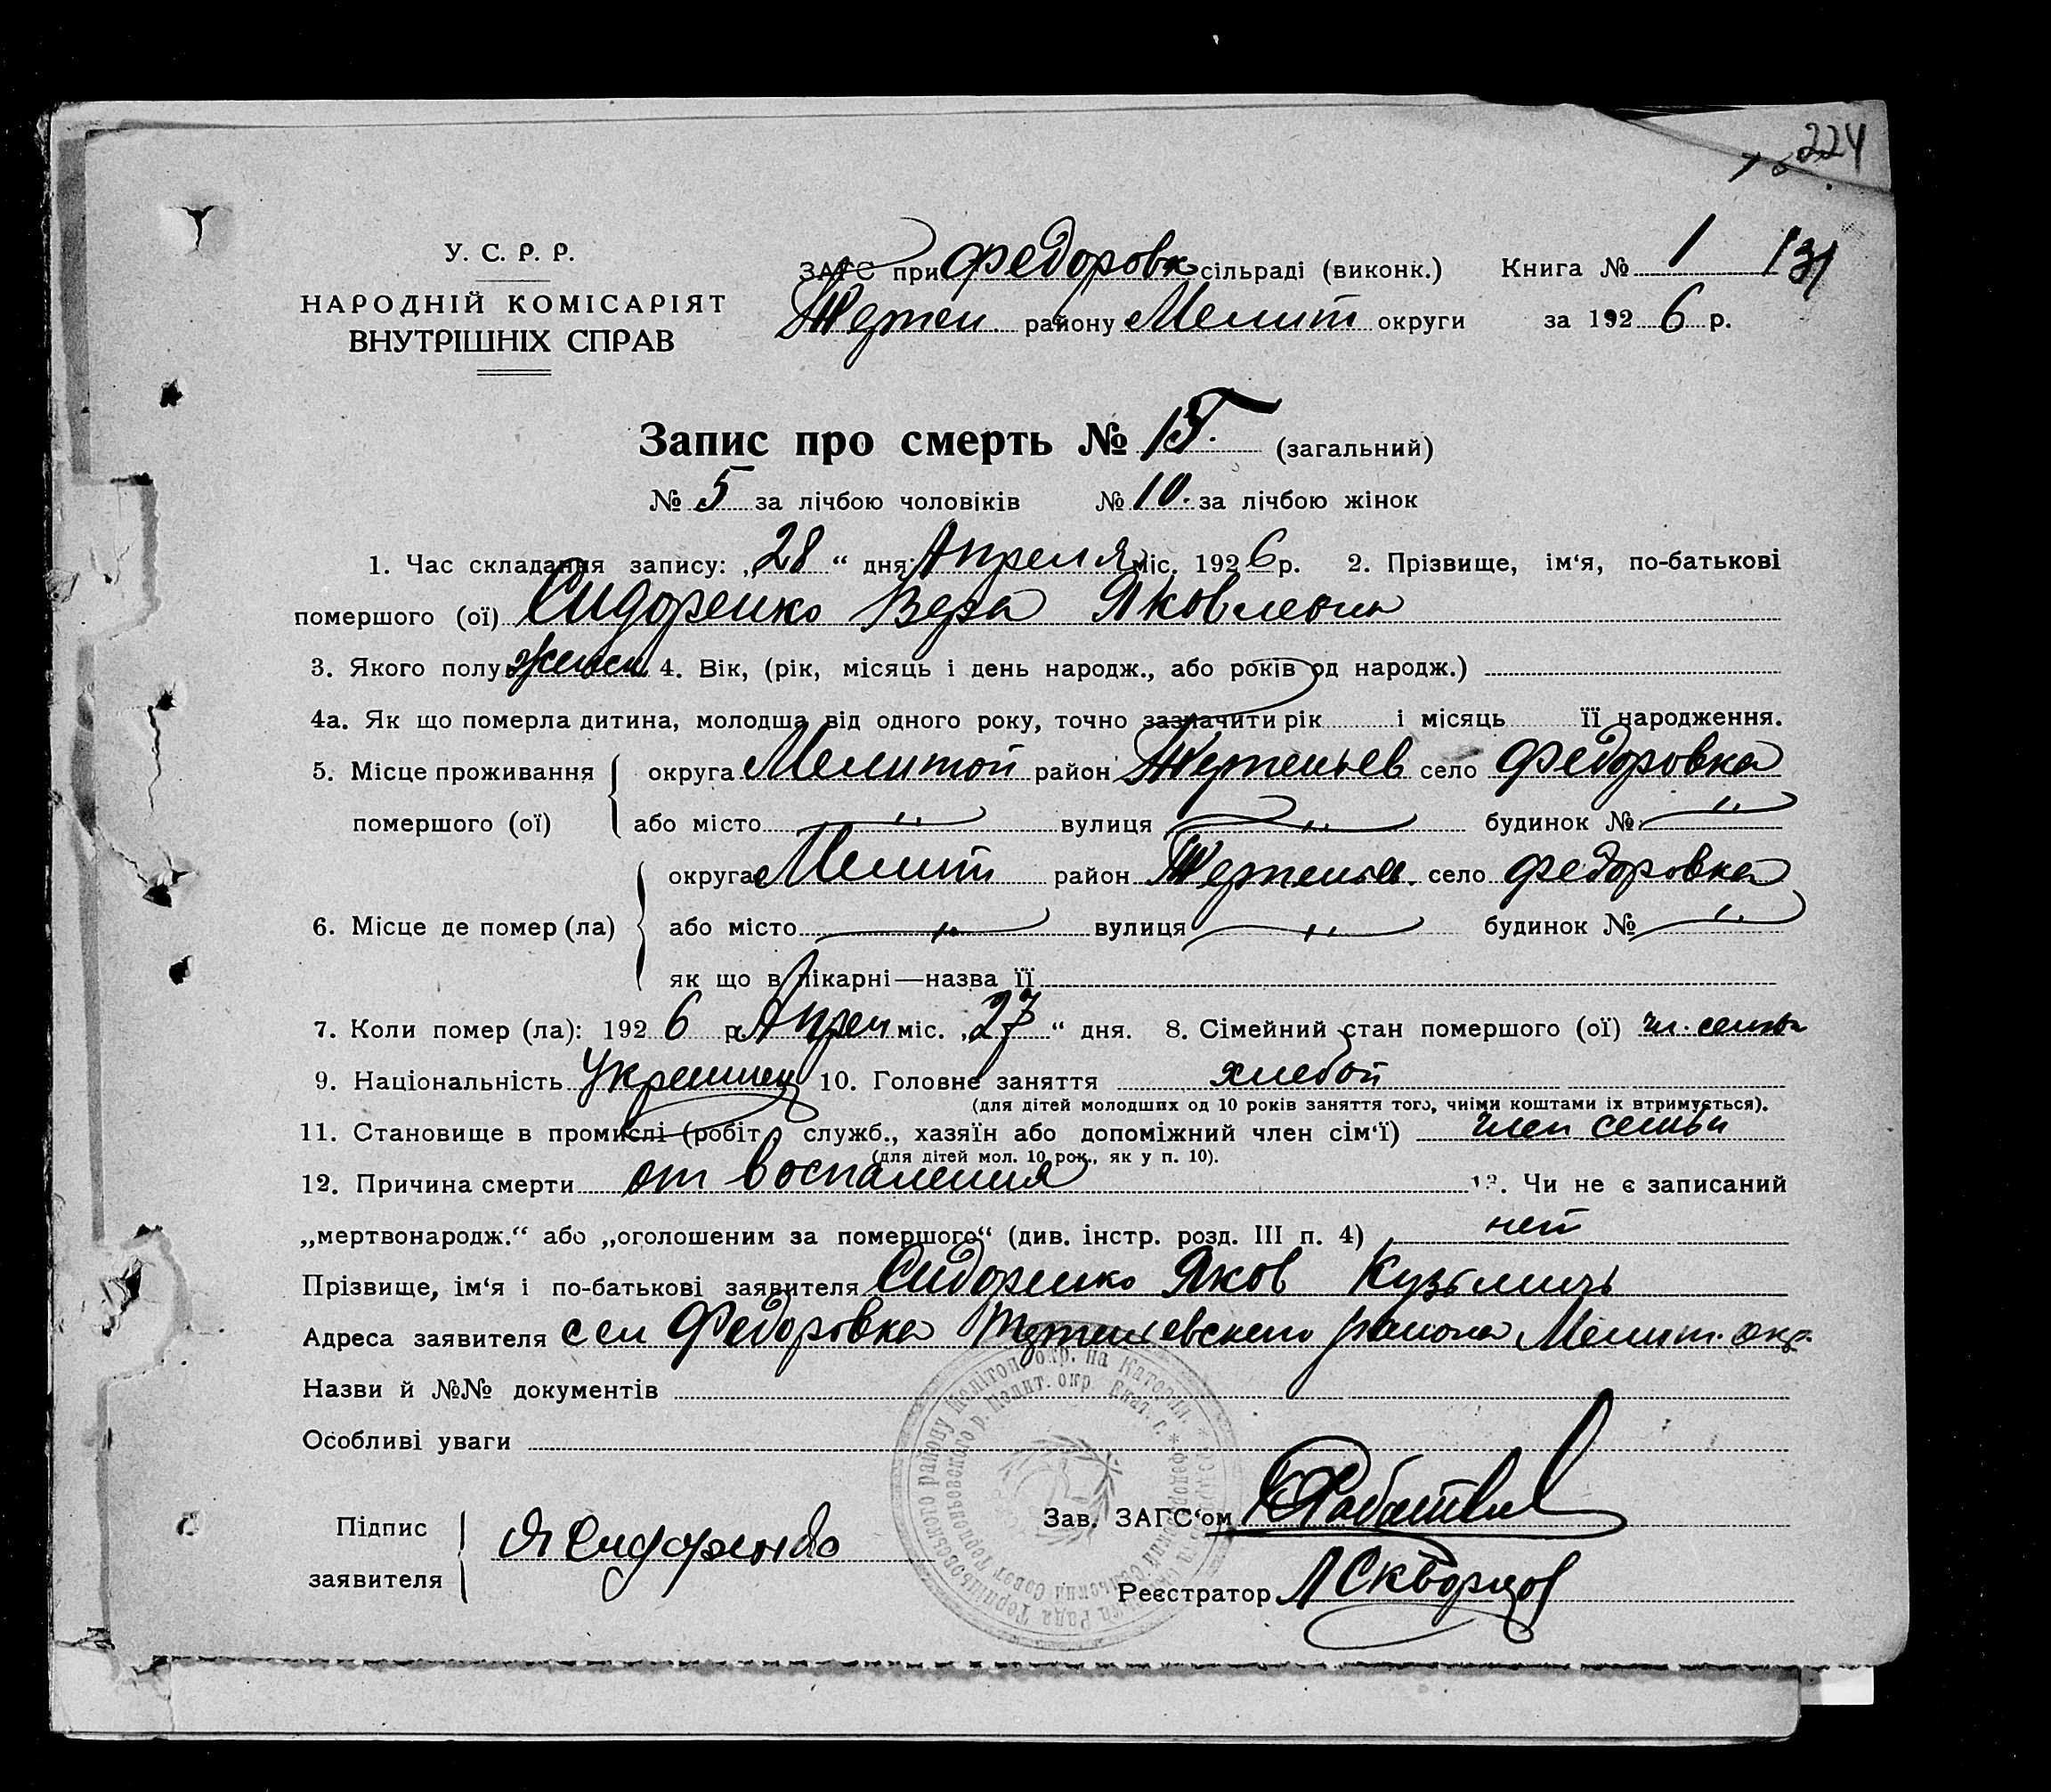 224
У. С. Р. Р.
НАРОДНІЙ КОМІСАРІЯТ
ВНУТРІШНІХ СПРАВ
ЗАГС при Федоровк сільраді (виконк.) Книга № 1 131
Терпен. району Мелит округи за 1926 р.
Запис про смерть № 15. (загальний)
№ 5 за лічбою чоловіків № 10. за лічбою жінок
1. Час складання запису: „28“ дня Апреля міс. 1926 р. 2. Прізвище, ім‘я, по-батькові
помершого (ої) Сидоренко Вера Яковлевна
3. Якого полу женск 4. Вік, (рік, місяць і день народж., або років од народж.)
4а. Як що померла дитина, молодща від одного року, точно зазначити рік і місяць її народження.
5. Місце проживання округа Мелитоп район Терпеньев село Федоровка
помершого (ої) або місто „ вулиця „ будинок № „
округа Мелит район Терпеньев. село Федоровка
6. Місце де помер (ла) або місто „ вулиця „ будинок № „
як що в лікарні—назва її
7. Коли помер (ла): 1926 р. Апрел міс. „27“ дня. 8. Сімейний стан помершого (ої) чл. семьи
9. Національність Украинец 10. Головне заняття хлебоп
(для дітей молодших од 10 років заняття того, чиїми коштами їх втримується).
11. Становище в промислі (робіт., служб., хазяїн або допоміжний член сім‘ї) член семьи
(для дітей мол. 10 рок., як у п. 10).
12. Причина смерти от воспаления 13. Чи не є записаний
„мертвонародж.“ або „оголошеним за помершого“ (див. інстр. розд. III п. 4) нет
Прізвище, ім‘я і по-батькові заявителя Сидоренко Яков Кузьмичь
Адреса заявителя сел Федоровка Терпеньевского района Мелит. окр.
Назви й №№ документів
Особливі уваги
Підпис
заявителя Я Сидоренко
Зав. ЗАГС‘ом
Реєстратор Л Скворцов